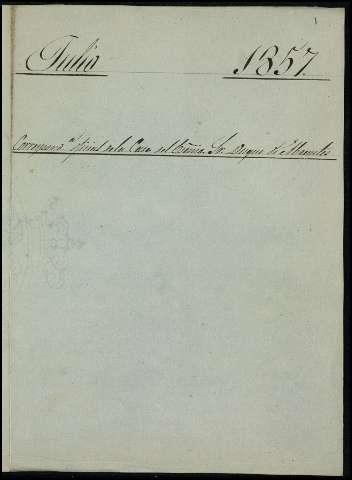 1
Julio 1857.
Correspond.ª oficial de la Casa del Excmo. Sr. Duque de